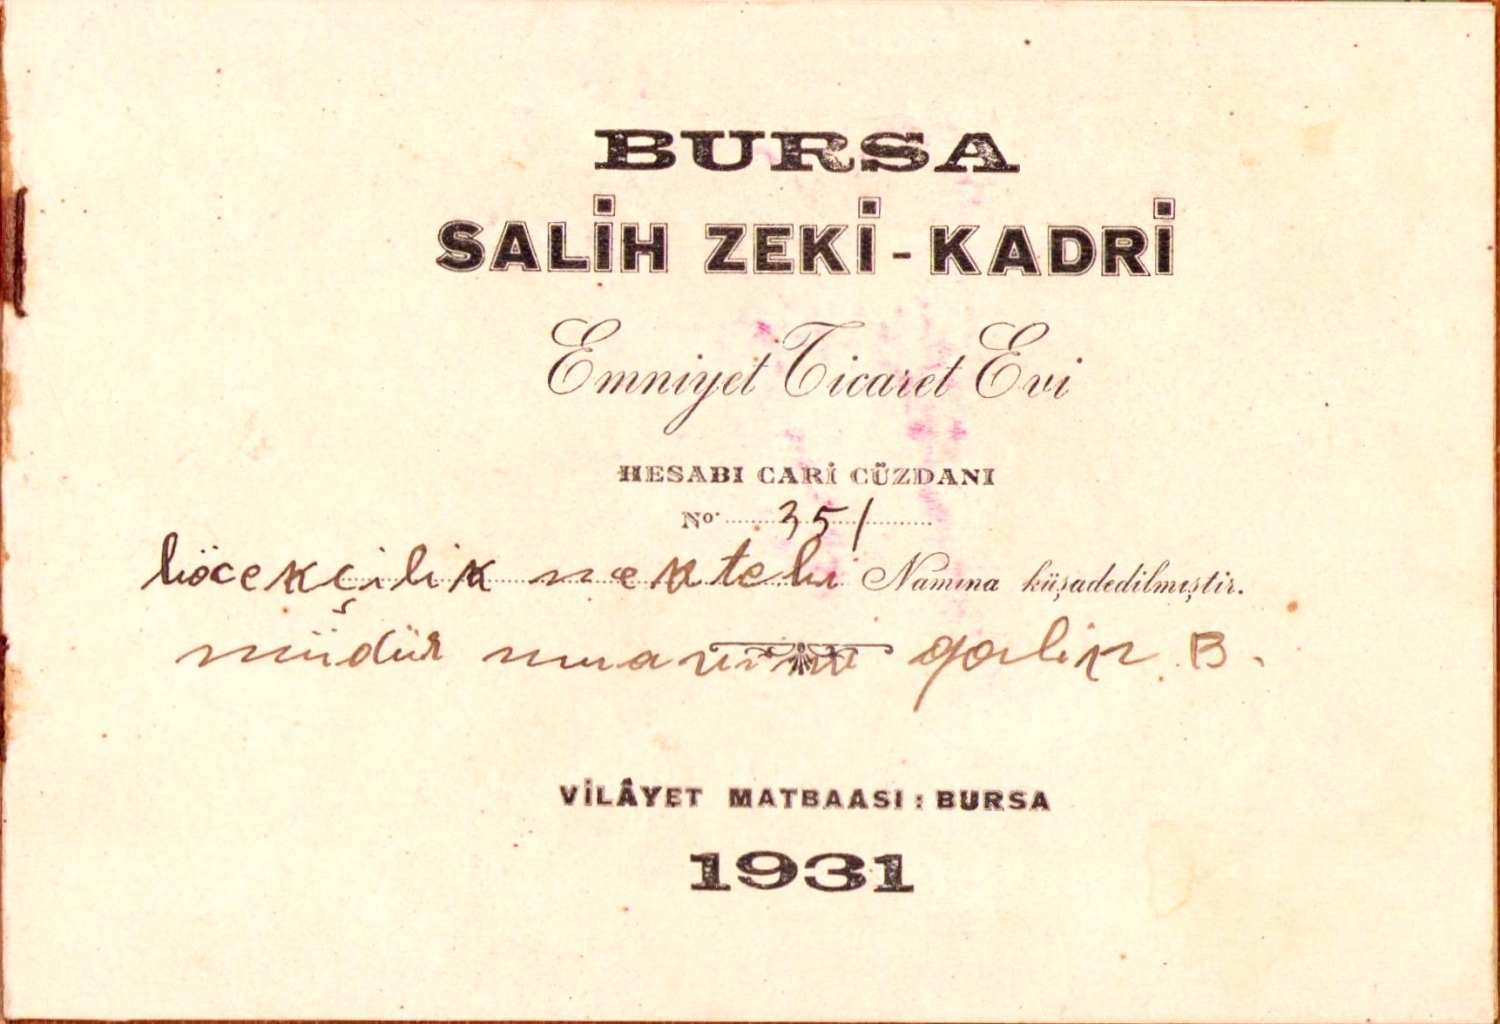 BURSA
SALİH ZEKİ - KADRİ
Emniyet Ticaret Evi
HESABI CARİ CÜZDANI
No. 351
böcekçilik mektebi Namına küşadedilmıştir.
müdür muavini galip B.
VİLÂYET MATBAASI : BURSA
1931